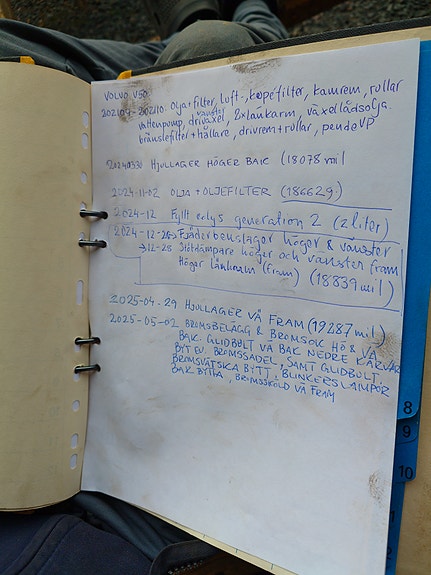 VOLVO V50
202109-202110: Olja+filter, luft-, kupéfilter, kamrem, rullar
vattenpump, drivaxel vänster, 2xlänkarm, växellådsolja
bränslefilter+hållare, drivrem+rullar, pende VP
20240330 HJULLAGER HÖGER BAK (18078 mil
2024-11-02 OLJA + OLJEFILTER (186629)
2024-12 Fyllt eolys generation 2 (2 liter)
2024-12-26 Fjäderbenslager höger & vänster
→12-28 Stötdämpare höger och vänster fram
Höger länkarm (fram) (18839 mil)
2025-04-29 HJULLAGER VÄ FRAM (19287 mil)
2025-05-02 BROMSBELÄGG & BROMSOK HÖ & VÄ
BAK. GLIDBULT VÄ BAK NEDRE KÄRVAR
BYT EV. BROMSSADEL, SAMT GLIDBULT.
BROMSVÄTSKA BYTT, BLINKERSLAMPOR
BAK BYTTA, BROMSSKÖLD VÄ FRAM
8
9
10